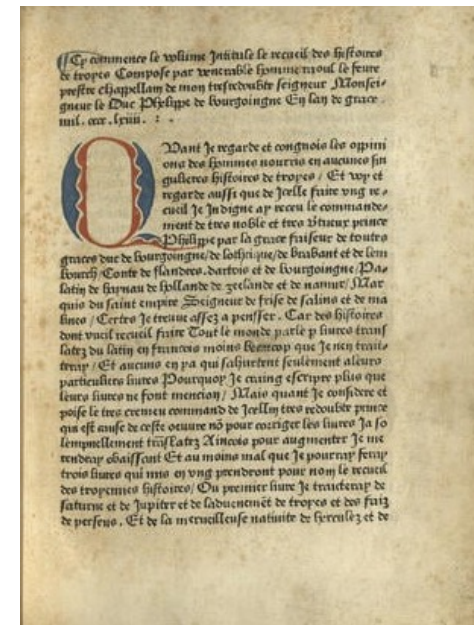 Cy commence le volume Intitule le recueil des histoires
de troyes Compose par venerable homme raoul le feure
prestre chappellain de mon tresredoubte seigneur Monsei-
gneur le Duc Phelippe de bourgoingne En lan de grace.
mil. cccc. lxiiii. : .
QVant Je regarde et congnois les oppini
ons des hommes nourris en aucunes sin
gulieres histoires de troyes / Et voy et
regarde aussi que de Icelle faire vng re-
cueil Je Indigne ay receu le commande-
ment de tres noble et tres vertueux prince
Phelippe par la grace faiseur de toutes
graces duc de bourgoingne/ de lothrique/ de brabant et de lem
bourch/ Conte de flandres. dartois et de bourgoingne/ Pa-
latin de haynau de hollande de zeelande et de namur/ Mar
quis du saint empire Seigneur de frise de salins et de ma
lines / Certes Je treuue assez a pensser. Car des histoires
dont vueil recueil faire Tout le monde parle p liures trans
latez du latin en francois moins beaucop que Je nen trait-
teray / Et aucuns en ya qui sahurtent seulement aleurs
particuliers liures Pourquoy Je craing escripre plus que
leurs liures ne font mention/ Mais quant Je considere et
poise le tres cremeu command de Icellui tres redoubte prince
qui est cause de ceste oeuure nõ pour corriger les liures Ja so
lempnellement trãslatez Aincois pour augmenter Je me
rendray obaissant Et au moins mal que Je pourray feray
trois liures qui mis en vng prendront pour nom le recueil
des troyennes histoires/ Ou premier liure Je traicteray de
saturne et de Jupiter et de laduenemẽt de troyes et des faiz
de perseus. Et de la merueilleuse natiuite de hercules et de